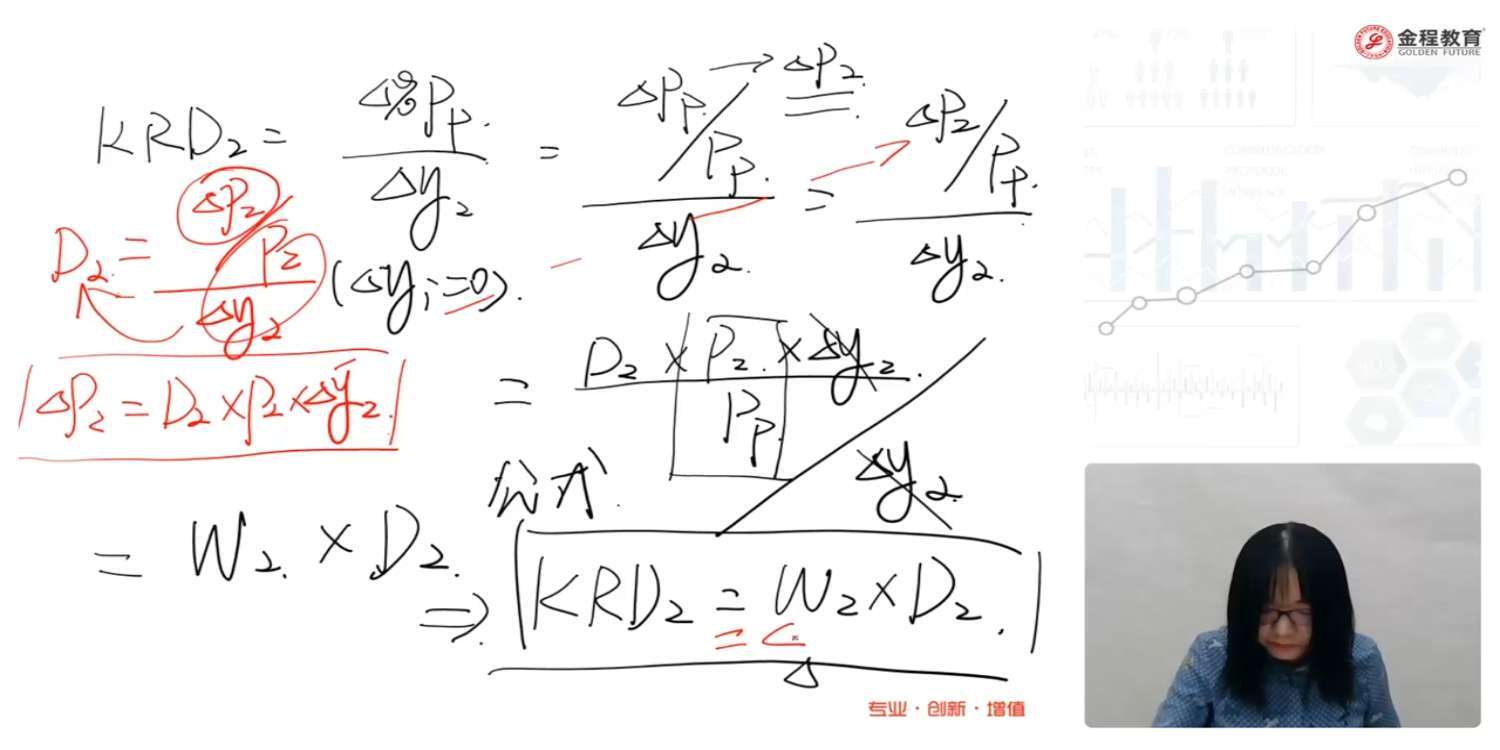 金程教育
GOLDEN FUTURE
KRD₂ = Δ%P_P / Δy₂ = (ΔP_P / P_P) / Δy₂ = (ΔP₂ / P_P) / Δy₂
→ ΔP₂
D₂ = (ΔP₂ / P₂) / Δy₂ (Δyᵢ=0).
ΔP₂ = D₂ × P₂ × Δy₂
= (D₂ × P₂ × Δy₂ / P_P) / Δy₂
公式
= W₂ × D₂ ⇒ KRD₂ = W₂ × D₂
Δ
专业·创新·增值